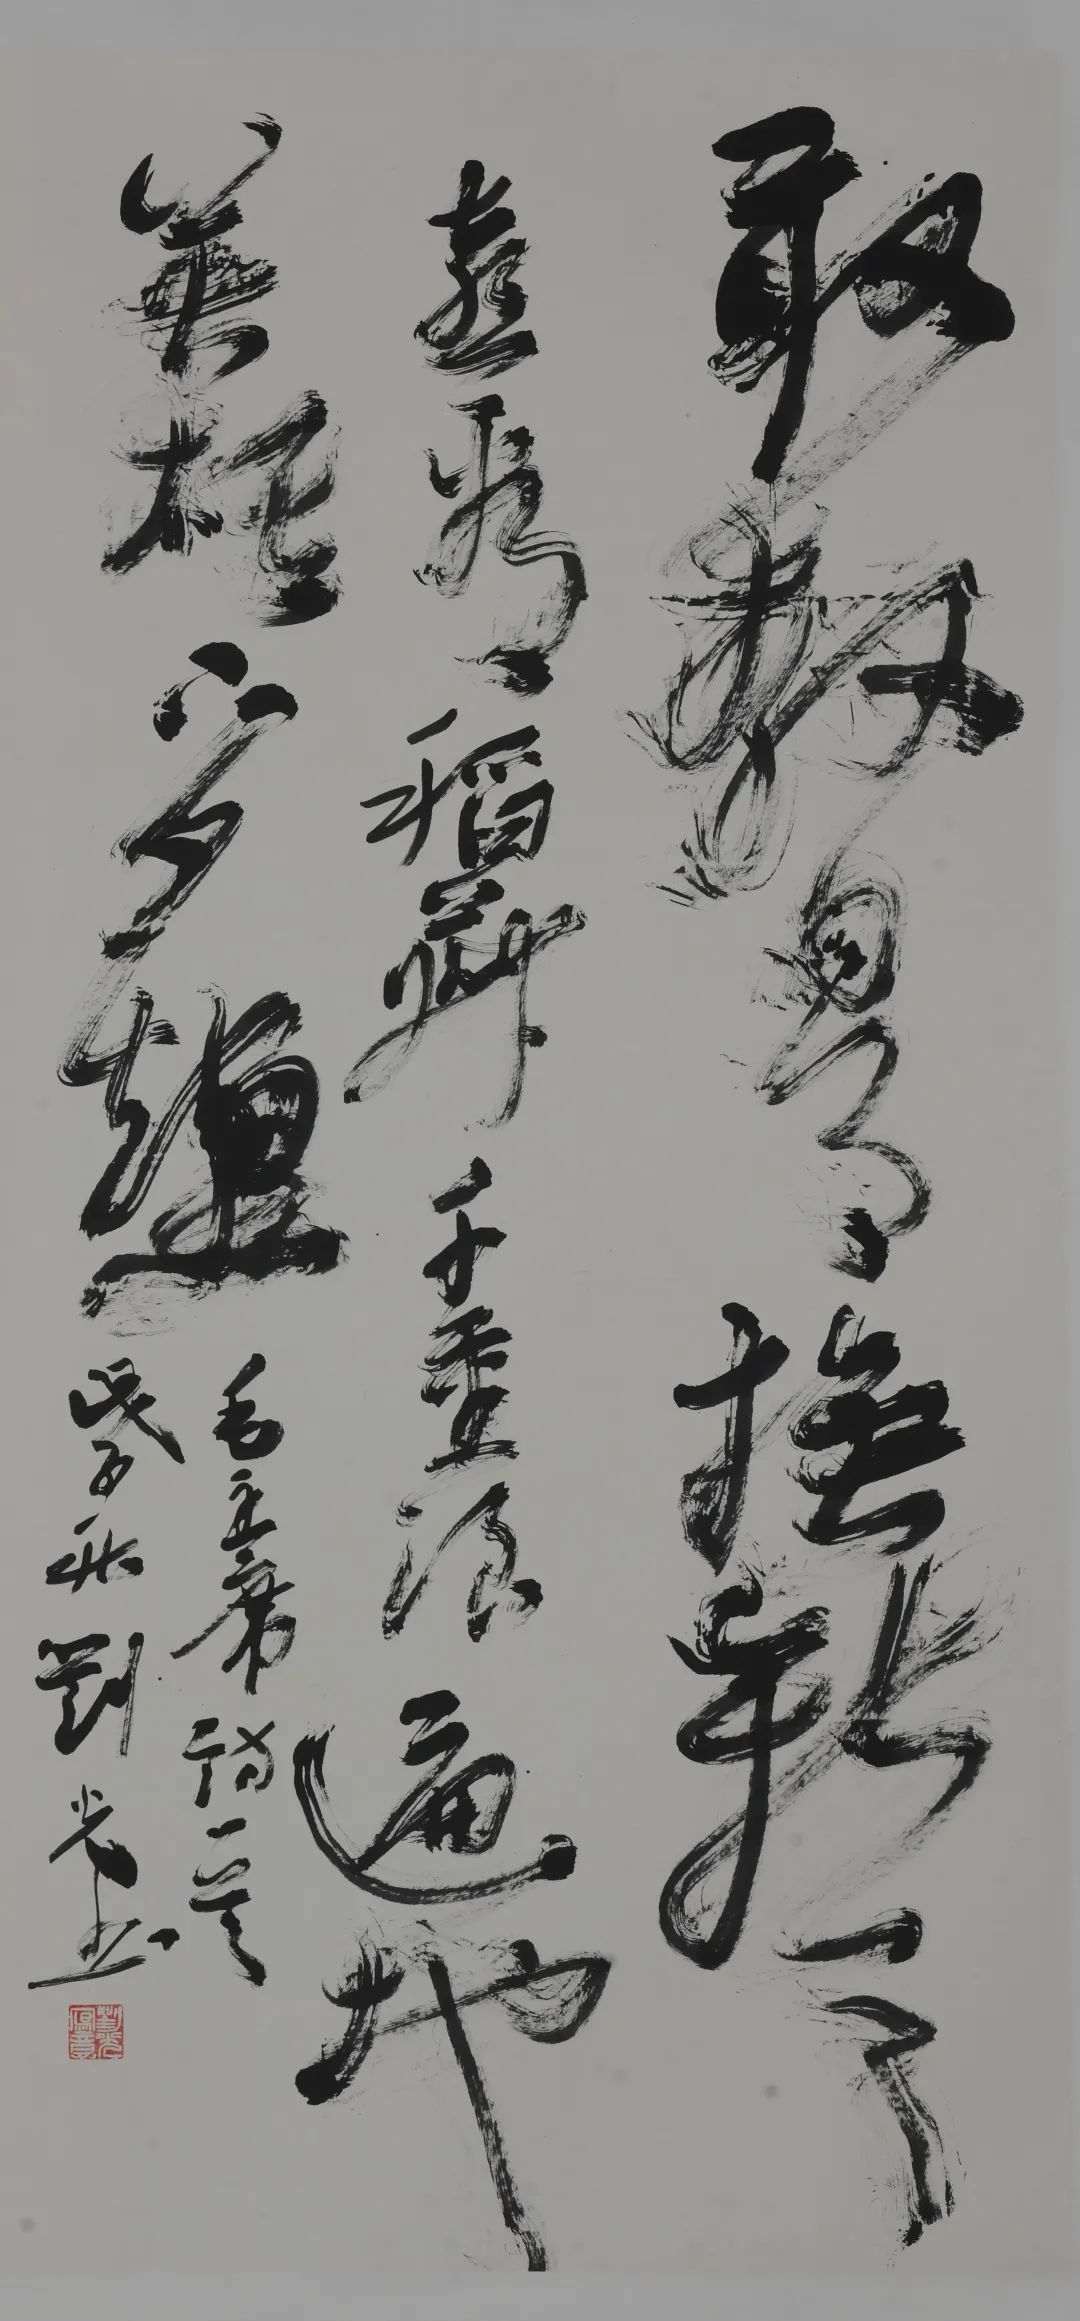 敢教日月换新天
喜看稻菽千重浪遍地
英雄下夕煙
毛主席詩一首
戊子秋劉光书